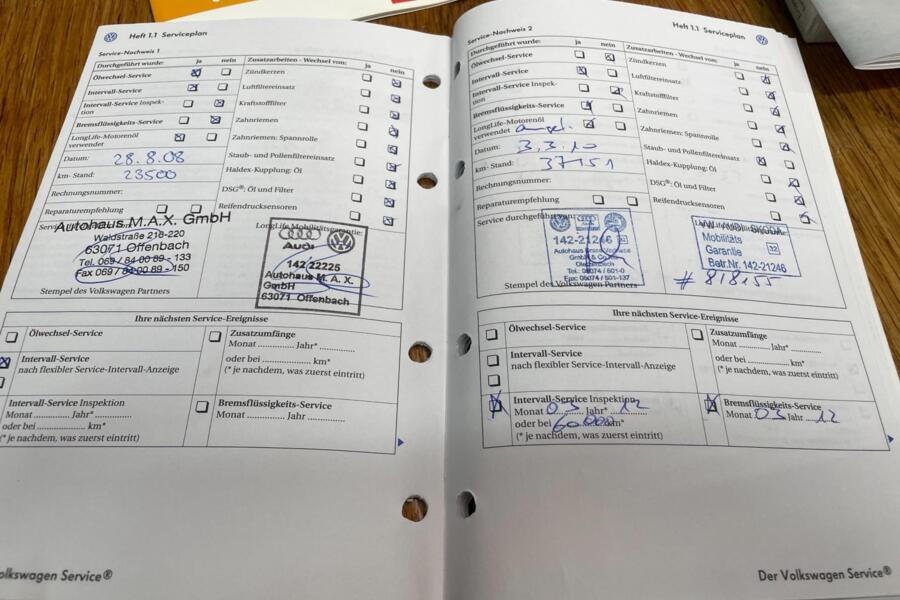 Heft 1.1 Serviceplan
Service-Nachweis 1
Durchgeführt wurde: ja nein
Ölwechsel-Service
Intervall-Service
Intervall-Service Inspek-
tion
Bremsflüssigkeits-Service
LongLife-Motorenöl
verwendet
Datum: 28.8.08
km- Stand: 23500
Rechnungsnummer:
Reparaturempfehlung
Zusatzarbeiten - Wechsel von: ja nein
Zündkerzen
Luftfiltereinsatz
Kraftstofffilter
Zahnriemen
Zahnriemen: Spannrolle
Staub- und Pollenfiltereinsatz
Haldex-Kupplung: Öl
DSG®: Öl und Filter
Reifendrucksensoren
LongLife Mobilitätsgarantie:
Autohaus M.A.X. GmbH
Waldstraße 218-220
63071 Offenbach
Tel. 069 / 84 00 89 - 133
Fax 069 / 84 00 89 - 150
Stempel des Volkswagen Partners
Audi
142 22225
Autohaus M.A.X.
GmbH
63071 Offenbach
Ihre nächsten Service-Ereignisse
Ölwechsel-Service
Intervall-Service
nach flexibler Service-Intervall-Anzeige
Intervall-Service Inspektion
Monat ........... Jahr* ............
oder bei ............ km*
(* je nachdem, was zuerst eintritt)
Zusatzumfänge
Monat ............ Jahr* ............
oder bei ............ km*
(* je nachdem, was zuerst eintritt)
Bremsflüssigkeits-Service
Monat ............ Jahr ............
olkswagen Service®
Heft 1.1 Serviceplan
Service-Nachweis 2
Durchgeführt wurde: ja nein
Ölwechsel-Service
Intervall-Service
Intervall-Service Inspek-
tion
Bremsflüssigkeits-Service
LongLife-Motorenöl
verwendet angel.
Datum: 3.3.10
km- Stand: 37151
Rechnungsnummer:
Reparaturempfehlung
Service durchgeführt von:
Zusatzarbeiten - Wechsel von: ja nein
Zündkerzen
Luftfiltereinsatz
Kraftstofffilter
Zahnriemen
Zahnriemen: Spannrolle
Staub- und Pollenfiltereinsatz
Haldex-Kupplung: Öl
DSG®: Öl und Filter
Reifendrucksensoren
142-21246
Tel.: 06074 / 801-0
Fax: 06074 / 801-137
Stempel des Volkswagen Partners
VW AUDI SKODA
Mobilitäts
Garantie 32
Betr.Nr. 142-21246
# 818155
Ihre nächsten Service-Ereignisse
Ölwechsel-Service
Intervall-Service
nach flexibler Service-Intervall-Anzeige
Intervall-Service Inspektion
Monat 03 Jahr* 12
oder bei 60.000 km*
(* je nachdem, was zuerst eintritt)
Zusatzumfänge
Monat ............ Jahr* ............
oder bei ............ km*
(* je nachdem, was zuerst eintritt)
Bremsflüssigkeits-Service
Monat 03 Jahr 12
Der Volkswagen Service®